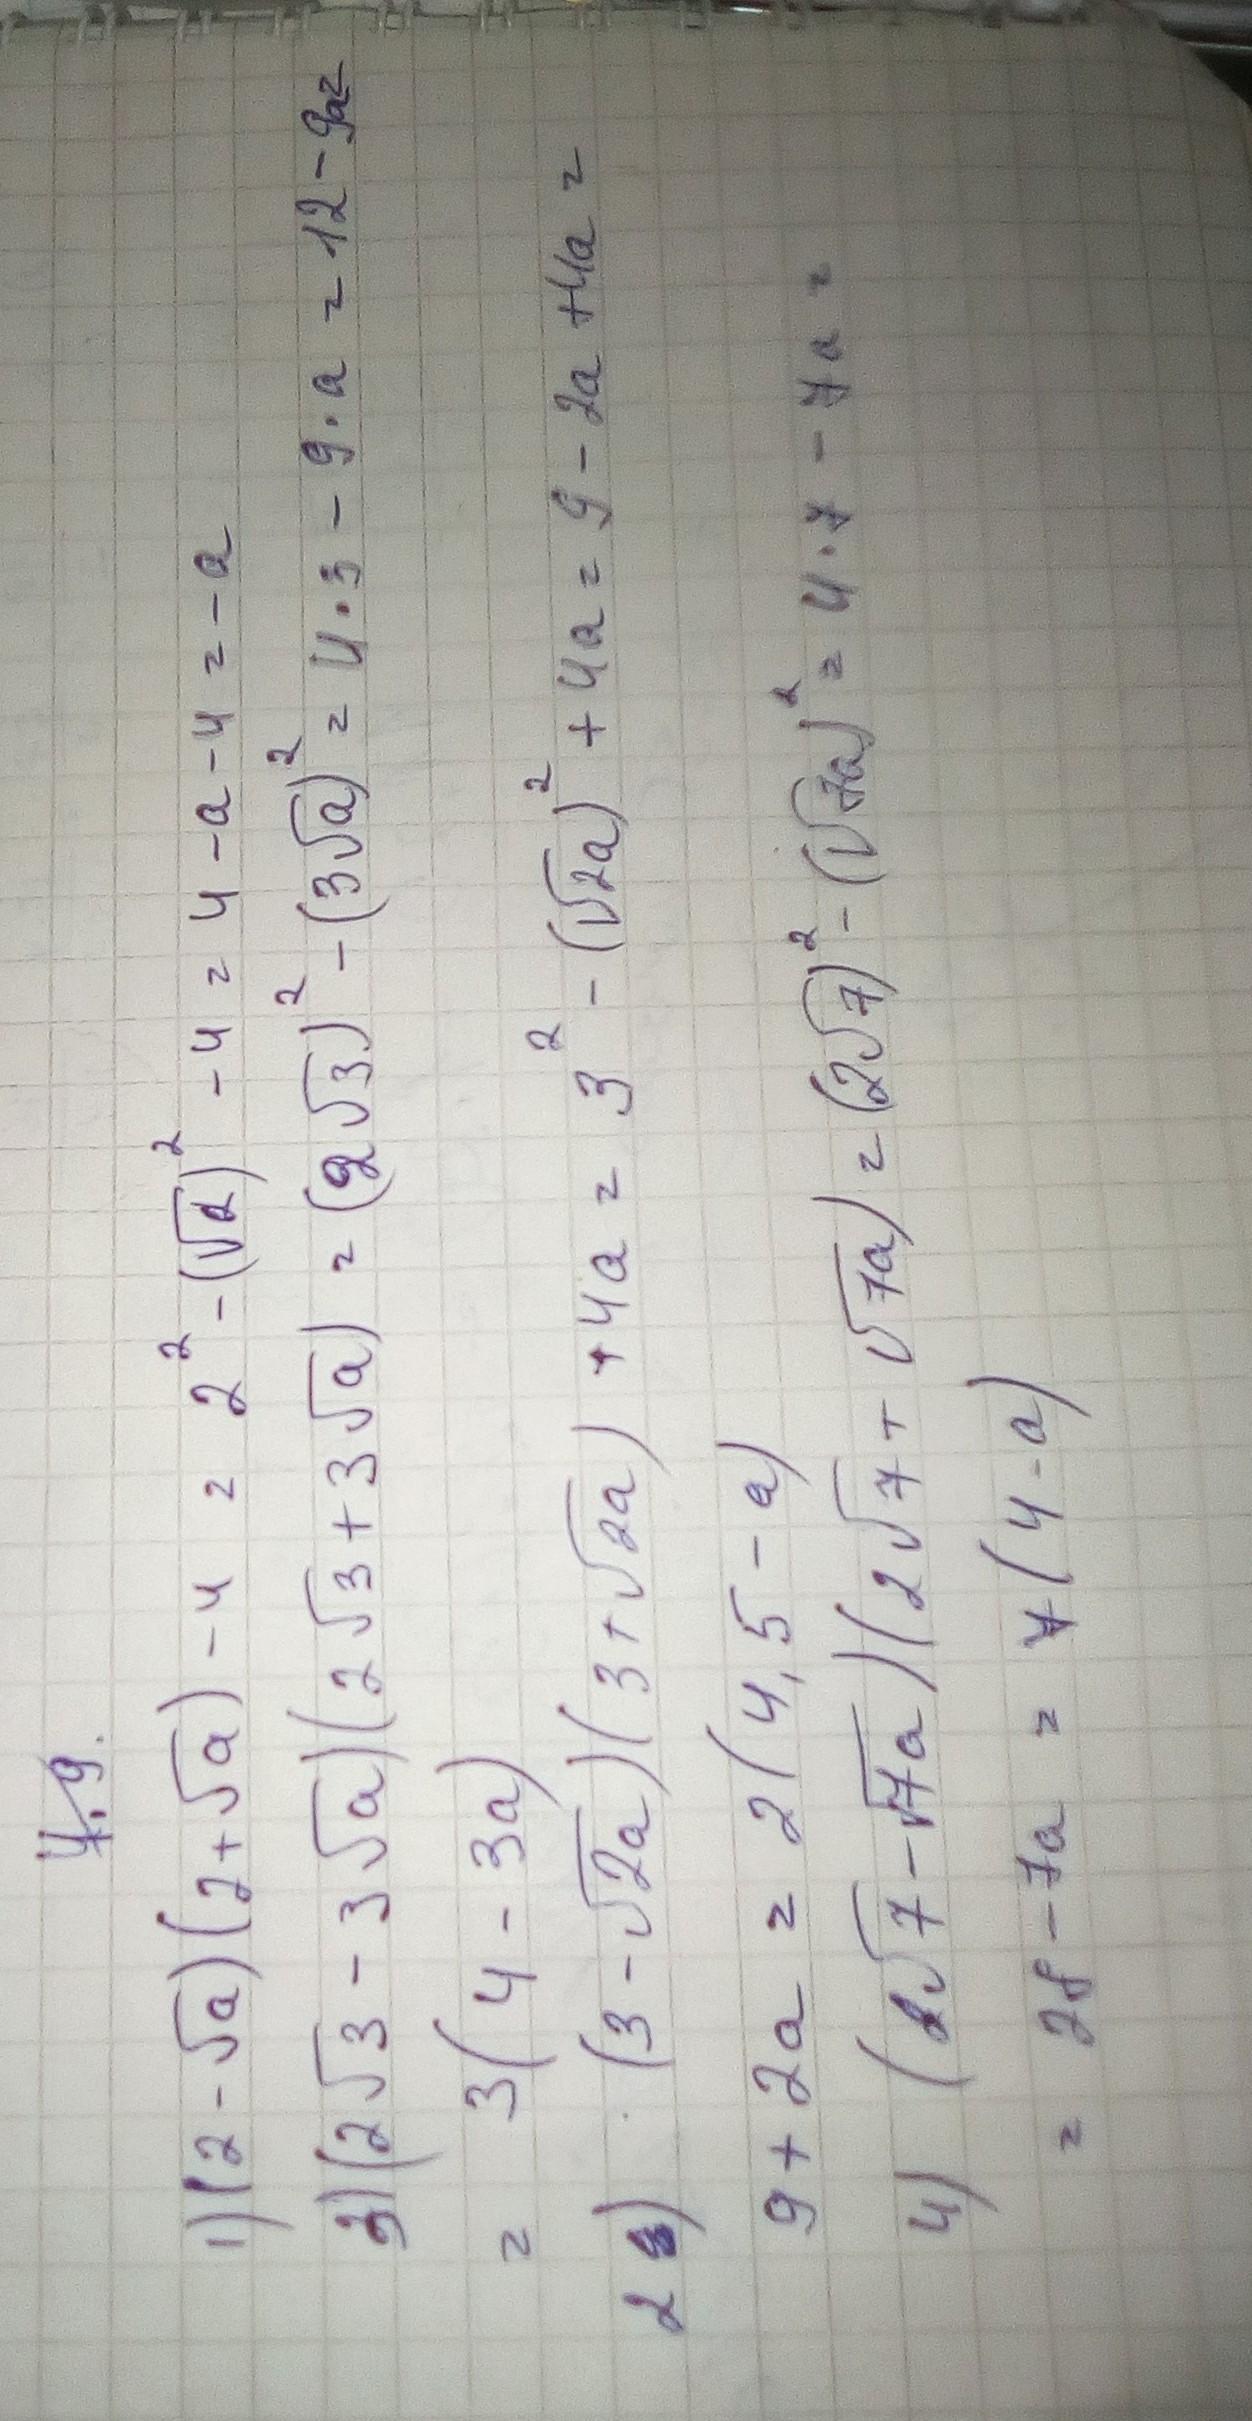 4.9.
1) (2-√a)(2+√a)-4 = 2²-(√a)²-4 = 4-a-4 = -a
3) (2√3-3√a)(2√3+3√a) = (2√3)²-(3√a)² = 4·3-9·a = 12-9a=
= 3(4-3a)
2) (3-√2a)(3+√2a)+4a = 3²-(√2a)²+4a = 9-2a+4a =
9+2a = 2(4,5-a)
4) (2√7-√7a)(2√7+√7a) = (2√7)²-(√7a)² = 4·7-7a =
= 28-7a = 7(4-a)